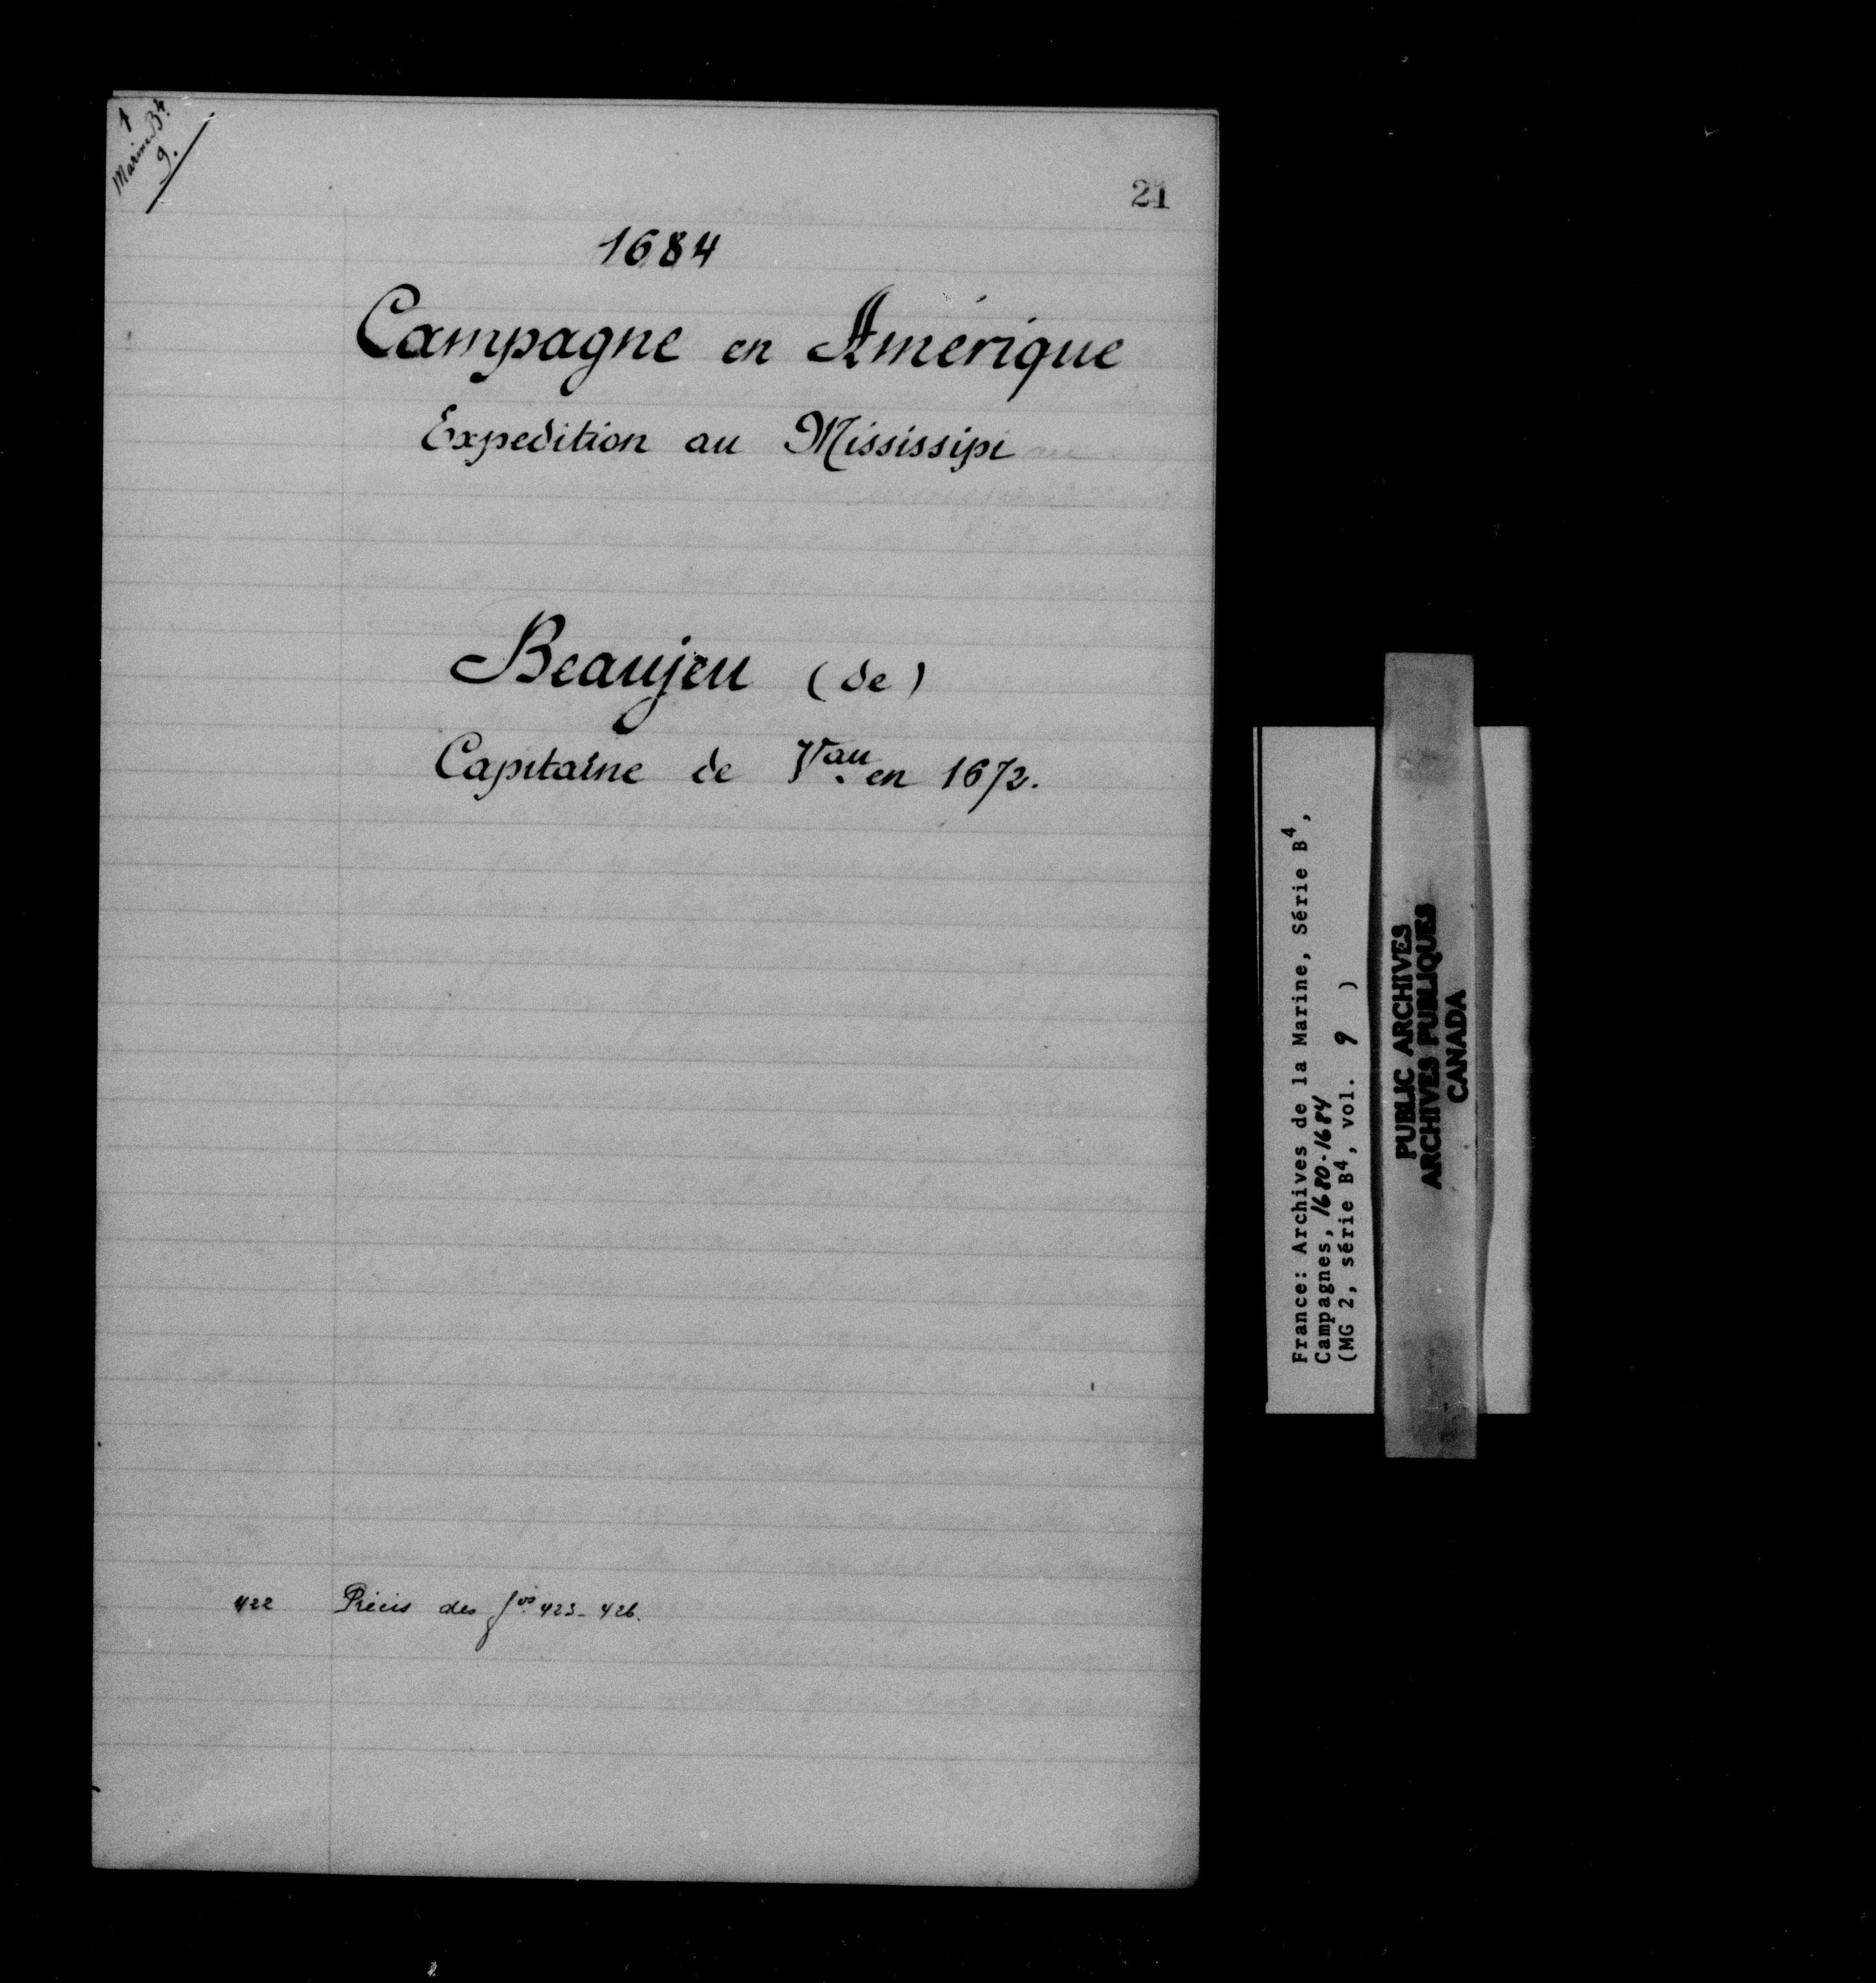 Marine B⁴.
9.
21
1684
Campagne en Amérique
Expedition au Mississipi
Beaujeu (de)
Capitaine de Vau. en 1672.
422 Précis des fos. 423-426.
France: Archives de la Marine, Série B⁴,
Campagnes, 1680-1684
(MG 2, série B⁴, vol. 9 )
PUBLIC ARCHIVES
ARCHIVES PUBLIQUES
CANADA